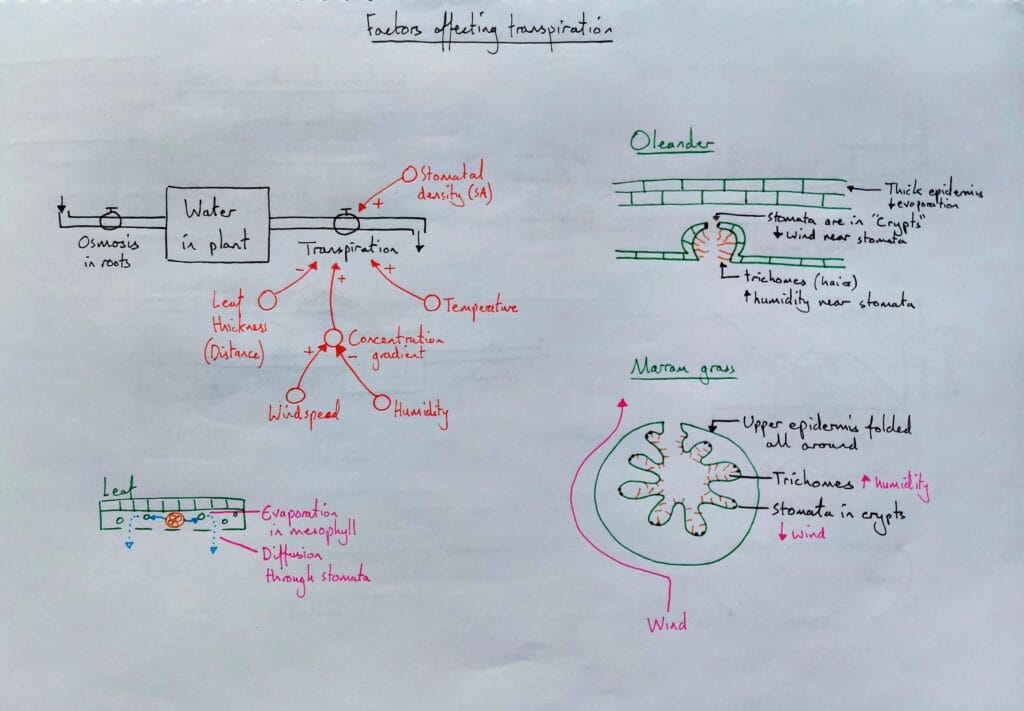 Factors affecting transpiration
Stomatal
density (SA)
+
Water
in plant
Osmosis
in roots
Transpiration
-
+
+
Leaf
thickness
(Distance)
Temperature
Concentration
gradient
+
-
Windspeed
Humidity
Leaf
Evaporation
in mesophyll
Diffusion
through stomata
Oleander
Thick epidermis
↓ evaporation
Stomata are in "Crypts"
↓ wind near stomata
trichomes (hair)
↑ humidity near stomata
Marram grass
Upper epidermis folded
all around
Trichomes ↑ humidity
Stomata in crypts
↓ wind
Wind